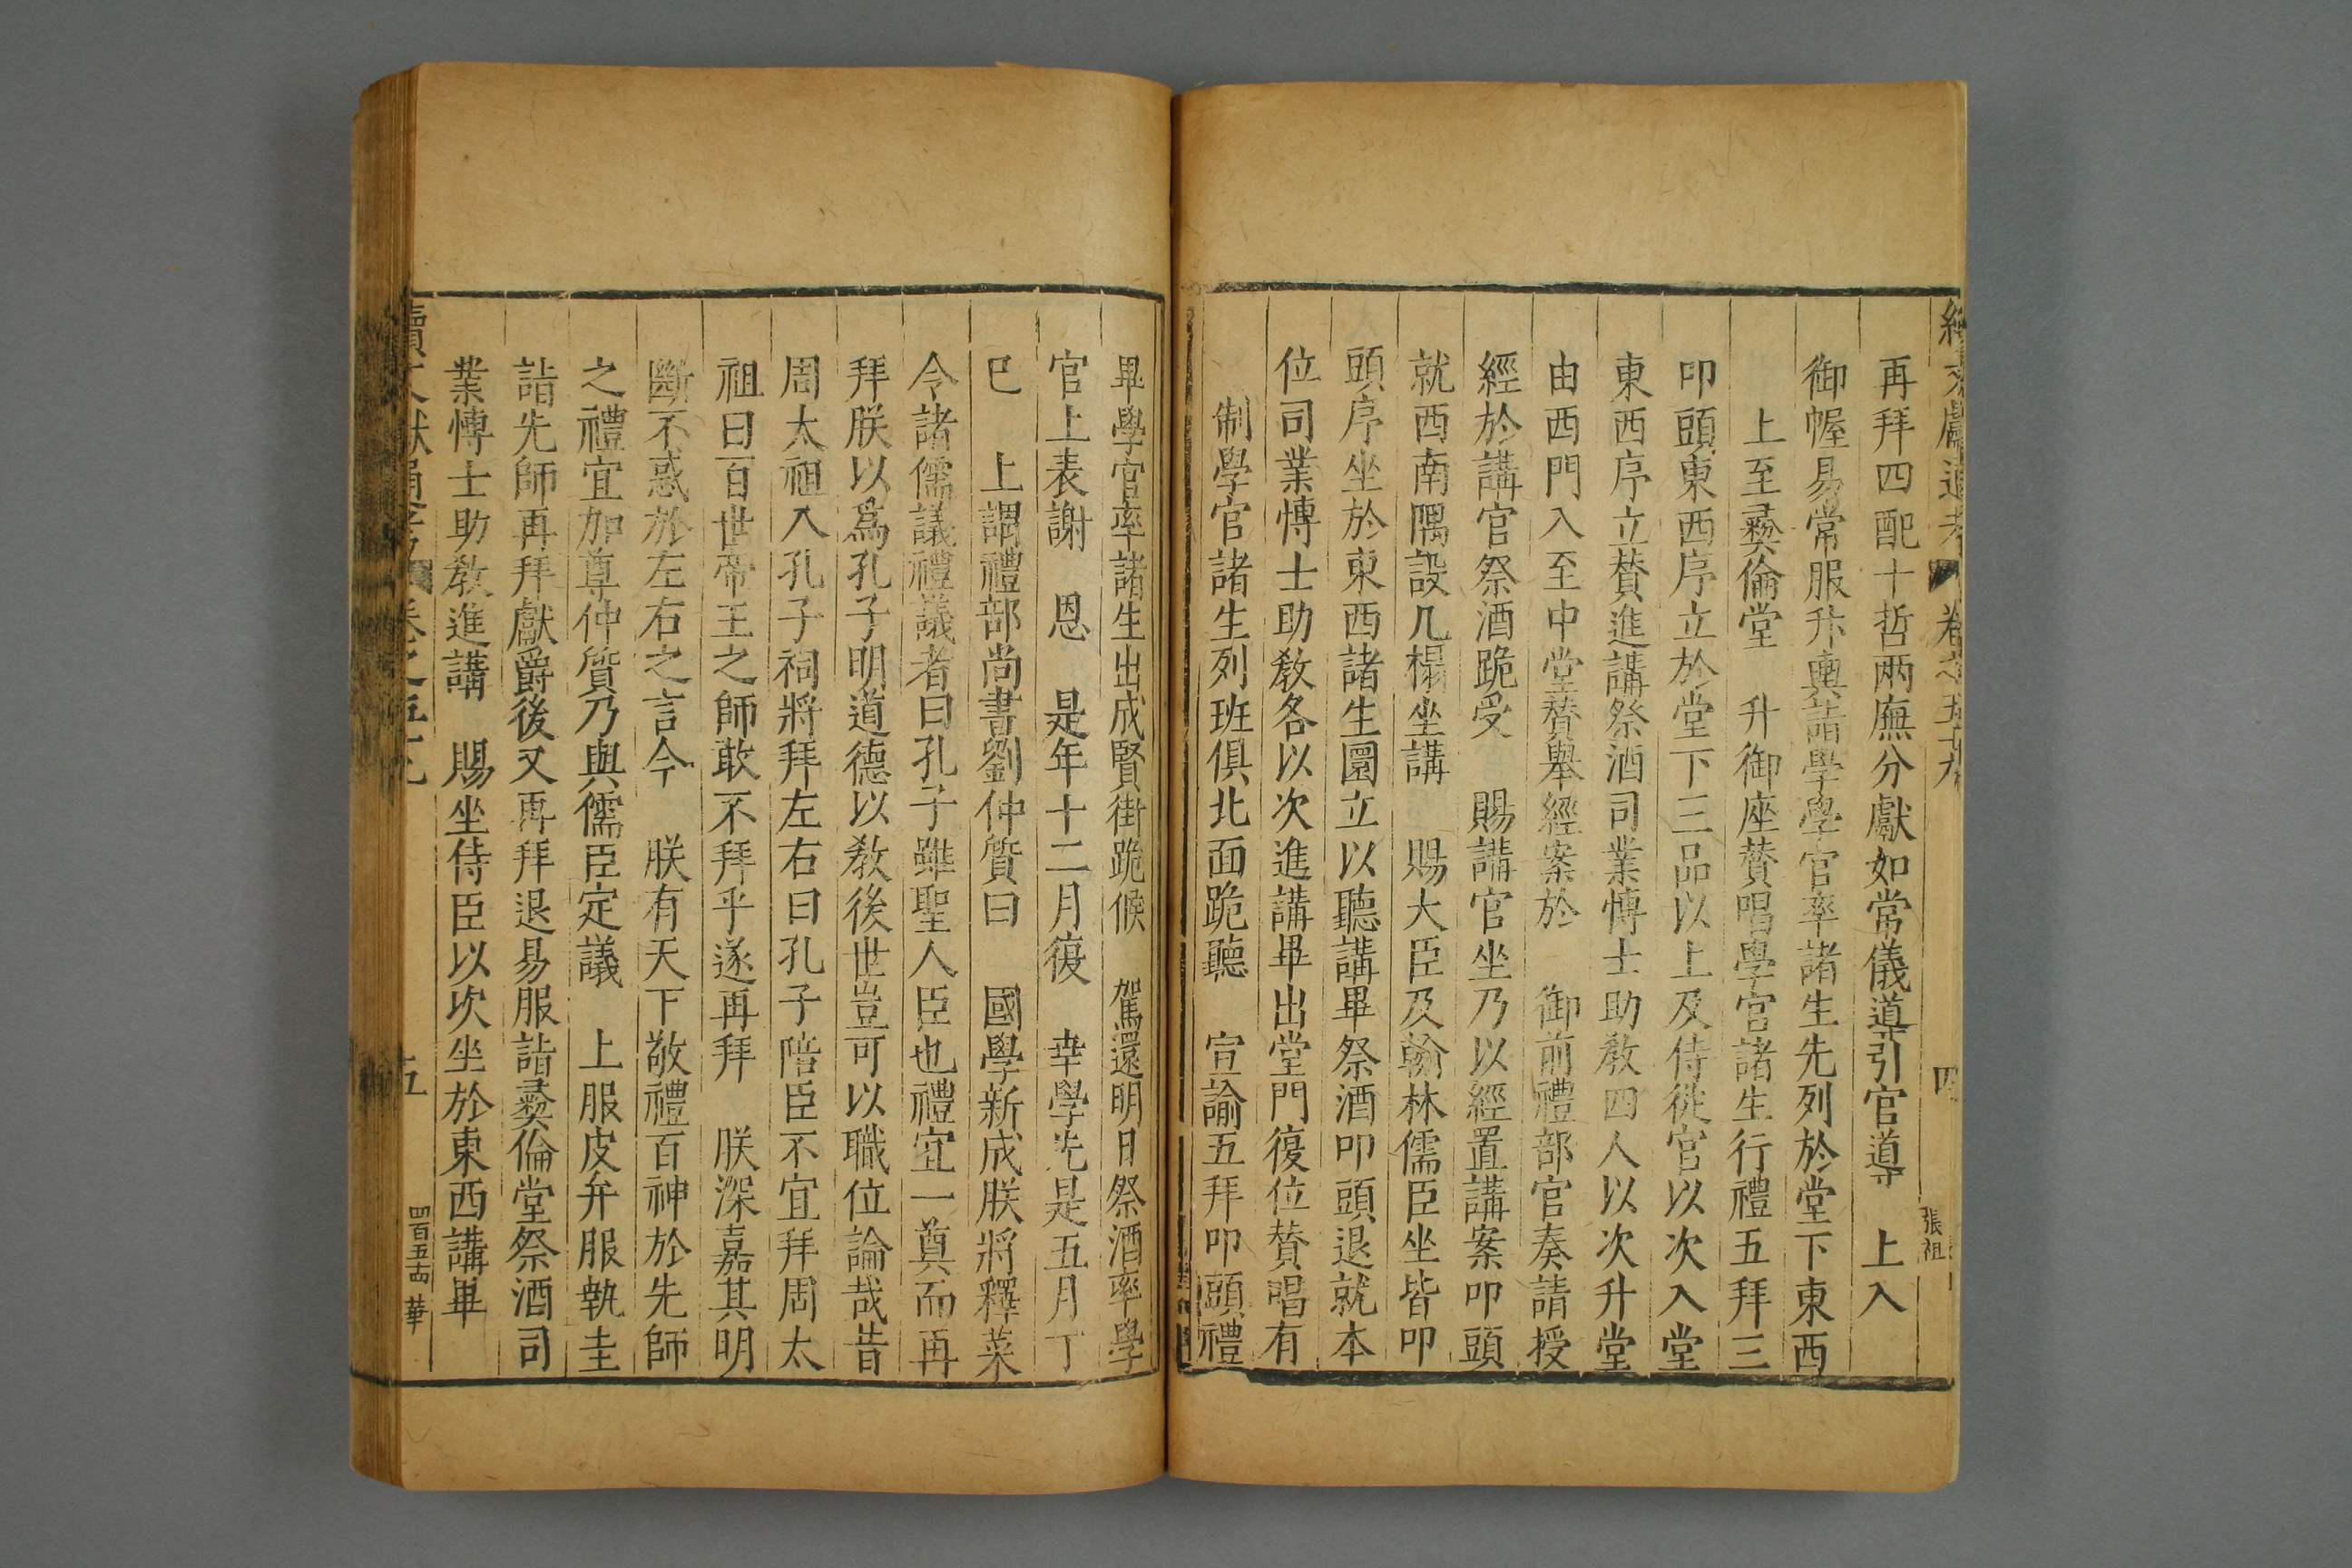 續文獻通考 卷之五十九 四 張祖
再拜四配十哲兩廡分獻如常儀導引官導 上入
御幄易常服升輿詣學學官率諸生先列於堂下東西
上至彝倫堂 升御座贊唱學官諸生行禮五拜三
叩頭東西序立於堂下三品以上及侍從官以次入堂
東西序立贊進講祭酒司業博士助教四人以次升堂
由西門入至中堂贊舉經案於 御前禮部官奏請授
經於講官祭酒跪受 賜講官坐乃以經置講案叩頭
就西南隅設几榻坐講 賜大臣及翰林儒臣坐皆叩
頭序坐於東西諸生圜立以聽講畢祭酒叩頭退就本
位司業博士助教各以次進講畢出堂門復位贊唱有
制學官諸生列班俱北面跪聽 宣諭五拜叩頭禮
畢學官率諸生出成賢街跪候 駕還明日祭酒率學
官上表謝 恩 是年十二月復 幸學先是五月丁
巳 上謂禮部尚書劉仲質曰 國學新成朕將釋菜
令諸儒議禮議者曰孔子雖聖人臣也禮宜一奠而再
拜朕以爲孔子明道德以教後世豈可以職位論哉昔
周太祖入孔子祠將拜左右曰孔子陪臣不宜拜周太
祖曰百世帝王之師敢不拜乎遂再拜 朕深嘉其明
斷不惑於左右之言今 朕有天下敬禮百神於先師
之禮宜加尊仲質乃與儒臣定議 上服皮弁服執圭
詣先師再拜獻爵後又再拜退易服詣彝倫堂祭酒司
業博士助教進講 賜坐侍臣以次坐於東西講畢
續文獻通考 卷之五十九 五 四百五十四 華